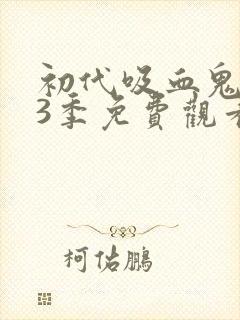 初代吸血鬼
3季免費觀看
柯佑鵬